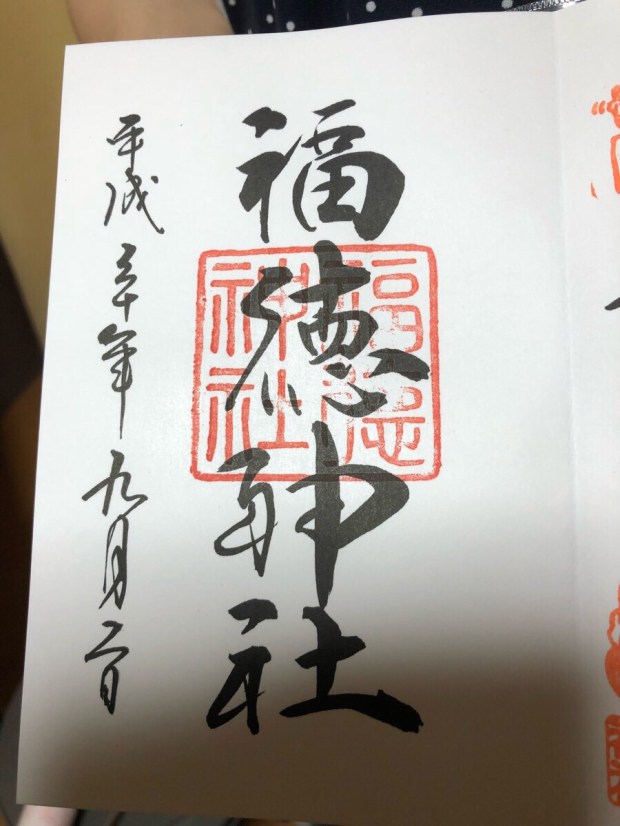 福徳神社
福徳
神社
平成三十年九月二日